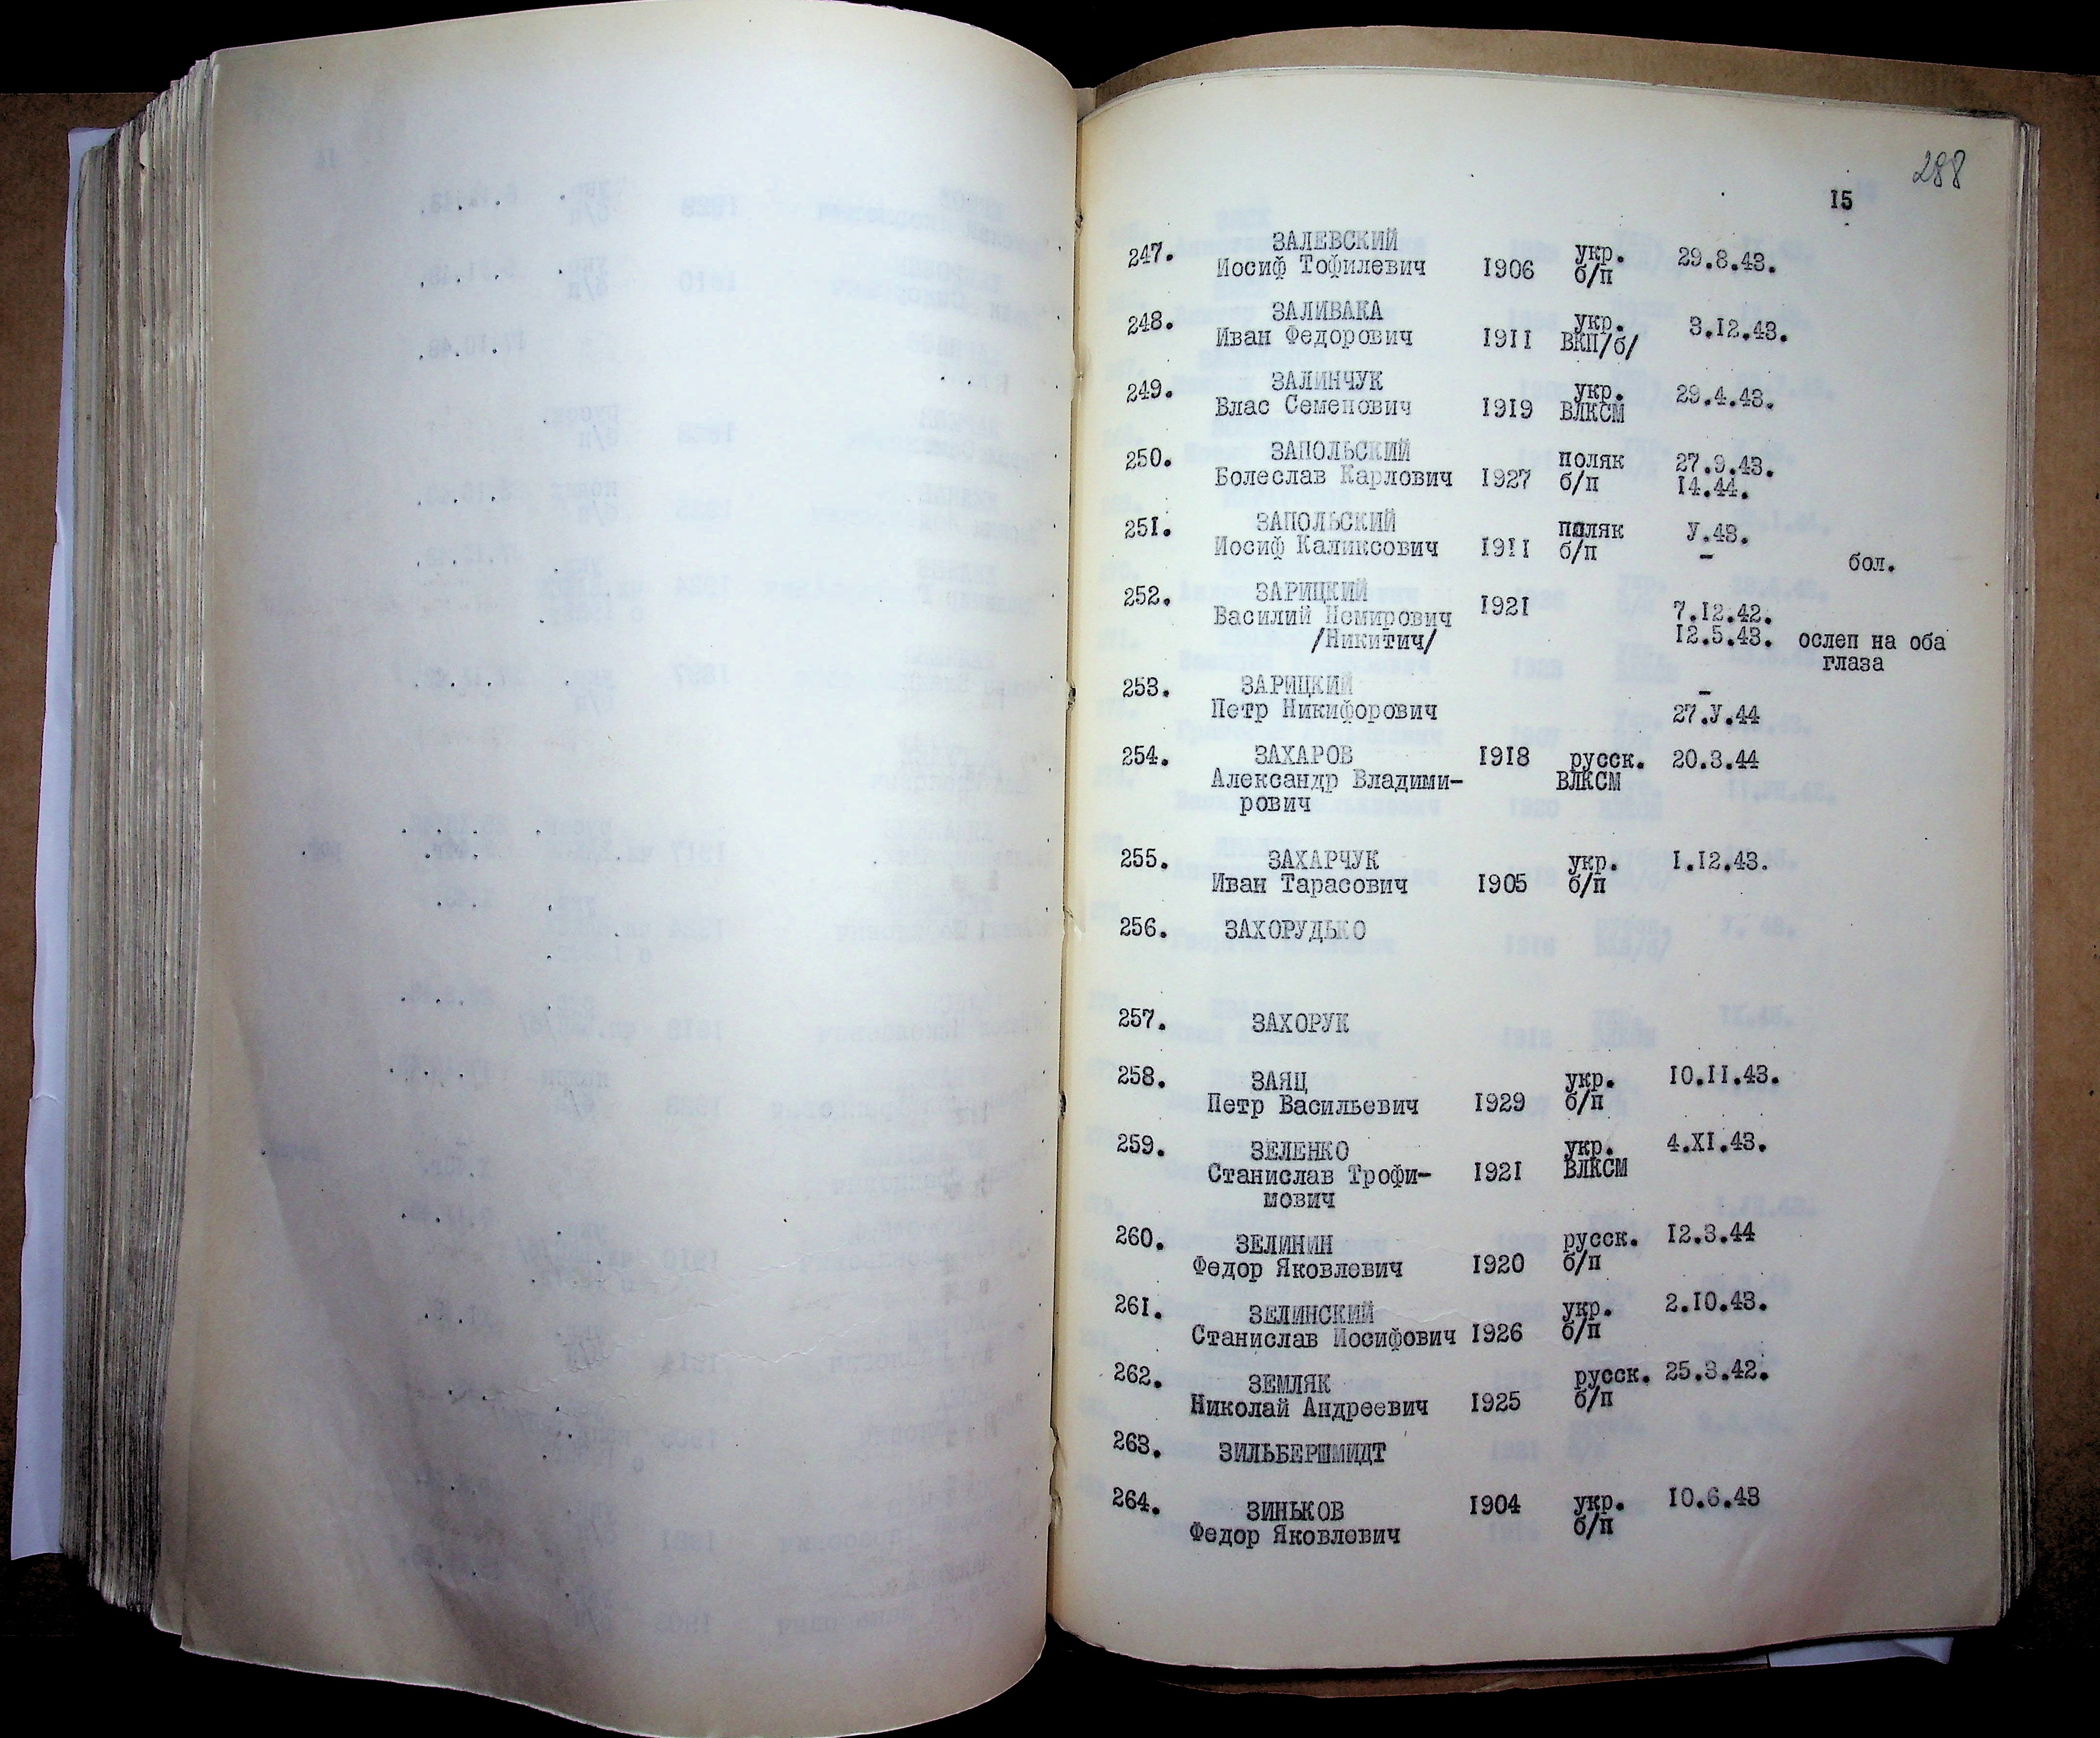 288
15
247. ЗАЛЕВСКИЙ
Иосиф Тофилевич 1906 укр. б/п 29.8.43.
248. ЗАЛИВАКА
Иван Федорович 1911 укр. ВКП/б/ 3.12.43.
249. ЗАЛИНЧУК
Влас Семенович 1919 укр. ВЛКСМ 29.4.43.
250. ЗАПОЛЬСКИЙ поляк 27.9.43.
Болеслав Карлович 1927 б/п 14.44.
251. ЗАПОЛЬСКИЙ поляк У.43.
Иосиф Каликсович 1911 б/п – бол.
252. ЗАРИЦКИЙ 1921
Василий Немирович 7.12.42.
/Никитич/ 12.5.43. ослеп на оба
глаза
253. ЗАРИЦКИЙ –
Петр Никифорович 27.У.44
254. ЗАХАРОВ 1918 русск. 20.3.44
Александр Владими- ВЛКСМ
рович
255. ЗАХАРЧУК укр. 1.12.43.
Иван Тарасович 1905 б/п
256. ЗАХОРУДЬКО
257. ЗАХОРУК
258. ЗАЯЦ укр. 10.11.43.
Петр Васильевич 1929 б/п
259. ЗЕЛЕНКО укр. 4.XI.43.
Станислав Трофи- 1921 ВЛКСМ
мович
260. ЗЕЛИНИН русск. 12.3.44
Федор Яковлевич 1920 б/п
261. ЗЕЛИНСКИЙ укр. 2.10.43.
Станислав Иосифович 1926 б/п
262. ЗЕМЛЯК русск. 25.3.42.
Николай Андреевич 1925 б/п
263. ЗИЛЬБЕРШМИДТ
264. ЗИНЬКОВ 1904 укр. 10.6.43
Федор Яковлевич б/п